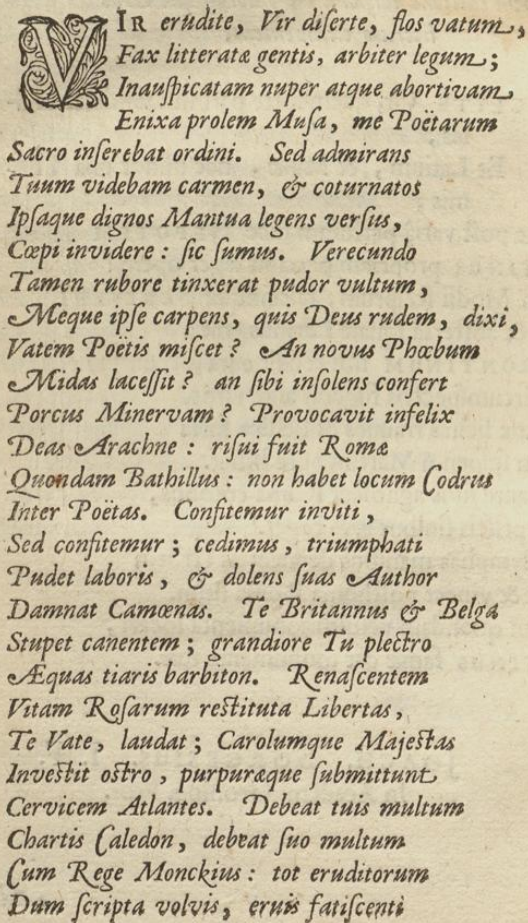 VIR erudite, Vir diserte, flos vatum,
Fax litteratæ gentis, arbiter legum;
Inauspicatam nuper atque abortivam
Enixa prolem Musa, me Poëtarum
Sacro inserebat ordini. Sed admirans
Tuum videbam carmen, & coturnatos
Ipsaque dignos Mantua legens versus,
Cœpi invidere: sic sumus. Verecundo
Tamen rubore tinxerat pudor vultum,
Meque ipse carpens, quis Deus rudem, dixi,
Vatem Poëtis miscet? An novus Phœbum
Midas lacessit? an sibi insolens confert
Porcus Minervam? Provocavit infelix
Deas Arachne: risui fuit Romæ
Quondam Bathillus: non habet locum Codrus
Inter Poëtas. Confitemur inviti,
Sed confitemur; cedimus, triumphati
Pudet laboris, & dolens suas Author
Damnat Camœnas. Te Britannus & Belga
Stupet canentem; grandiore Tu plectro
Æquas tiaris barbiton. Renascentem
Vitam Rosarum restituta Libertas,
Te Vate, laudat; Carolumque Majestas
Investit ostro, purpuræque submittunt
Cervicem Atlantes. Debeat tuis multum
Chartis Caledon, debeat suo multum
Cum Rege Monckius: tot eruditorum
Dum scripta volvis, eruis fatiscenti